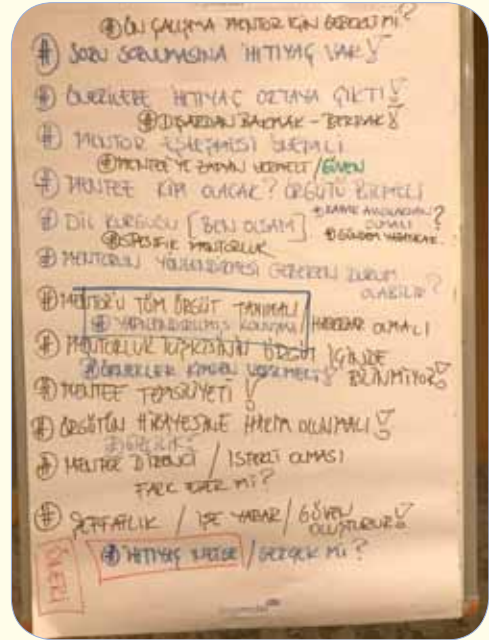 # ÖN ÇALIŞMA MENTOR İÇİN GEREKLİ Mİ?
# SORU SORULMASINA İHTİYAÇ VAR!
# ÖNERİLERE İHTİYAÇ ORTAYA ÇIKTI!
# DIŞARDAN BAKMAK - BERRAK!
# MENTOR EŞLEŞMESİ ÖNEMLİ
# MENTEE'YE ZAMAN VERMELİ / GÜVEN
# MENTEE KİM OLACAK? ÖRGÜTÜ BİLMELİ
# DİL KURGUSU [BEN OLSAM]
OLMALI?
# SPESİFİK MENTORLUK
# GÜNDEM
# MENTORUN YÖNLENDİRMESİ GEREKEN DURUM
OLABİLİR?
# MENTOR'U TÜM ÖRGÜT TANIMALI
# YAPILANDIRILMIŞ KONUŞMA / HABERDAR OLMALI
# MENTORLUK İLİŞKİSİNİN ÖRGÜT İÇİNDE
BİLİNMİYOR!
# ÖRNEKLER VERMELİ!
# MENTEE TEMSİLİYETİ!
# ÖRGÜTÜN HİKAYESİNE HAKİM OLUNMALI!
# GİZLİLİK!
# MENTEE DİRENCİ / İSTEKLİ OLMASI
FARK EDER Mİ?
# ŞEFFAFLIK / İŞE YARAR / GÜVEN
OLUŞTURUR!
# İHTİYAÇ NEYSE / GERÇEK Mİ?
ÖNERİ